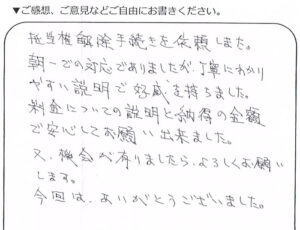 ▼ご感想、ご意見などご自由にお書きください。
抵当権解除手続きを依頼しました。
朝一での対応でありましたが、丁寧にわかり
やすい説明で好感を持ちました。
料金についての説明と納得の金額
で安心してお願い出来ました。
又、機会が有りましたら、よろしくお願い
します。
今回は、ありがとうございました。